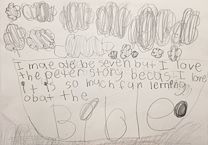 I mae olee be seven but I love
the peten stony becus I love
it it is so much fan lerning
obat the
Bible